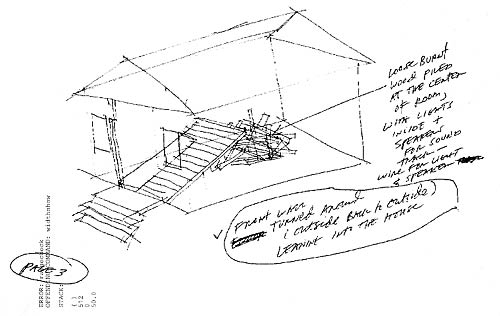 LOOSE BURNT
WOOD PILED
AT THE CENTER
OF ROOM,
WITH LIGHTS
INSIDE +
SPEAKERS
FOR SOUND
TRACK
WIRE FOR LIGHT
& SPEAKER
FRONT WALL
TURNED AROUND
(OUTSIDE BACK to OUTSIDE)
LEANING INTO THE HOUSE
PAGE 3
ERROR:
OFFENDING COMMAND: widthshow
STACK:
( )
512
0
50.0